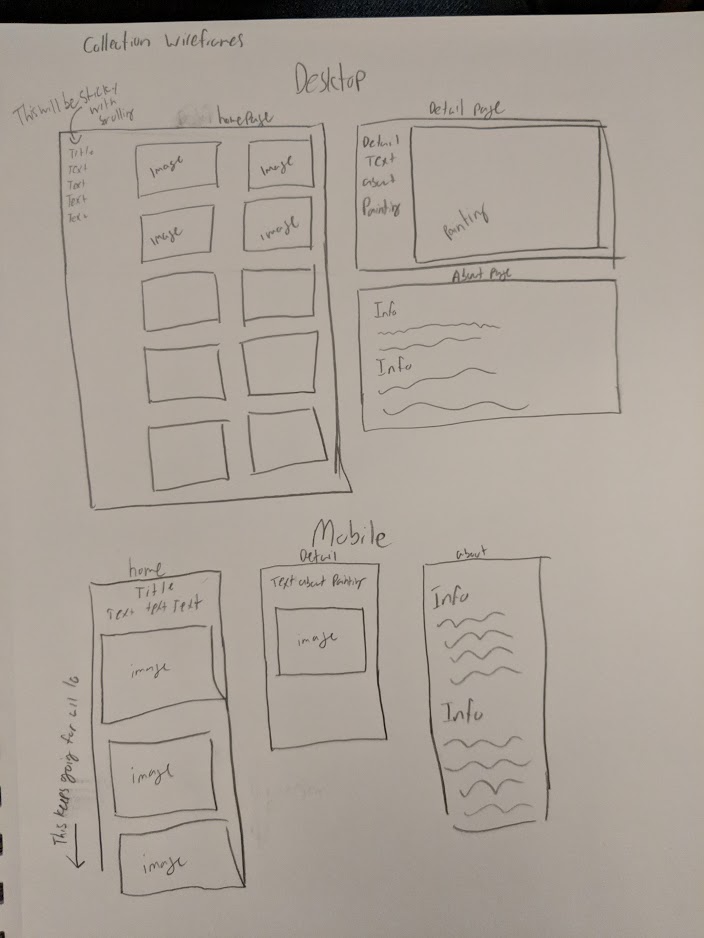 Collection Wireframes
Desktop
This will be sticky
with
scrolling
homepage
Title
Text
Text
Text
Text
image
image
image
image
Detail Page
Detail
Text
about
Painting
Painting
About Page
Info
Info
Mobile
home
Title
Text text Text
image
image
image
This keeps going for all 10
Detail
Text about Painting
image
about
Info
Info